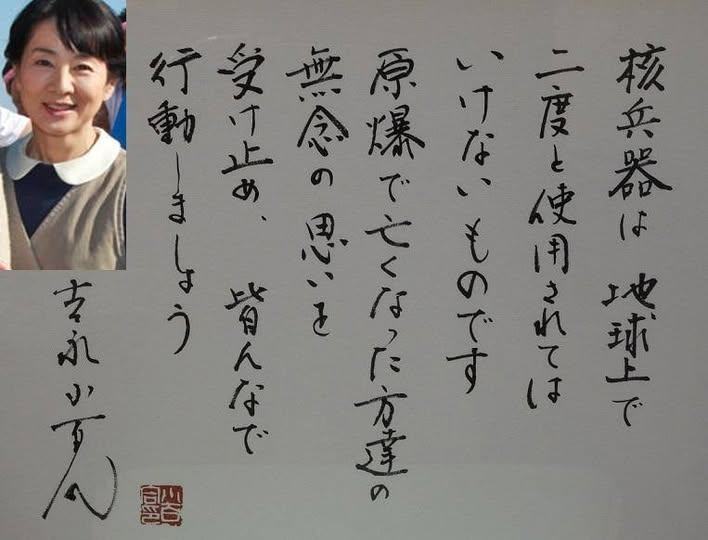 核兵器は 地球上で
二度と使用されては
いけないものです
原爆で亡くなった方達の
無念の思いを
受け止め、 皆んなで
行動しましょう
吉永小百合
小百合印